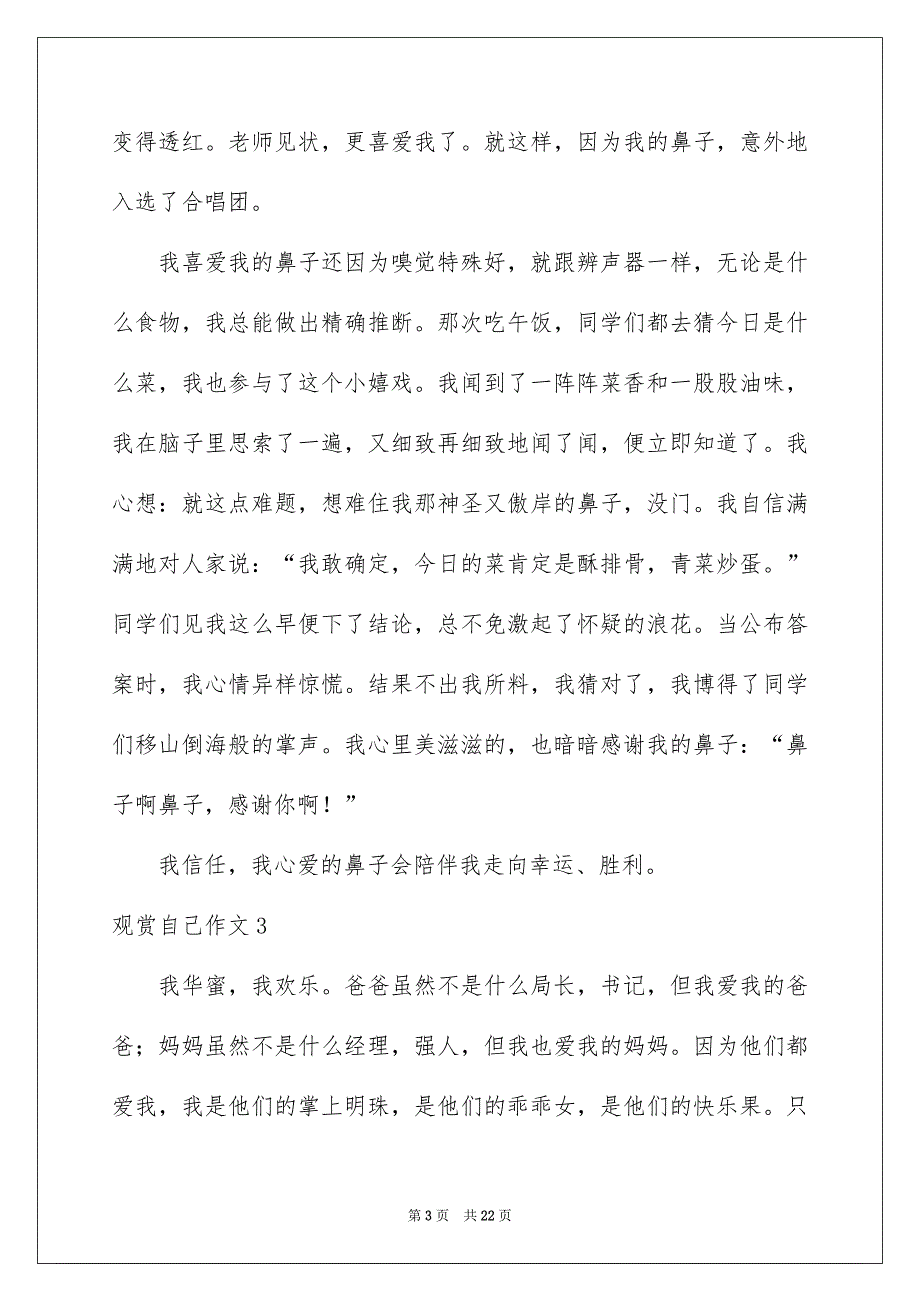 变得透红。老师见状，更喜爱我了。就这样，因为我的鼻子，意外地
入选了合唱团。
我喜爱我的鼻子还因为嗅觉特殊好，就跟辨声器一样，无论是什
么食物，我总能做出精确推断。那次吃午饭，同学们都去猜今日是什
么菜，我也参与了这个小嬉戏。我闻到了一阵阵菜香和一股股油味，
我在脑子里思索了一遍，又细致再细致地闻了闻，便立即知道了。我
心想：就这点难题，想难住我那神圣又傲岸的鼻子，没门。我自信满
满地对人家说：“我敢确定，今日的菜肯定是酥排骨，青菜炒蛋。”
同学们见我这么早便下了结论，总不免激起了怀疑的浪花。当公布答
案时，我心情异样惊慌。结果不出我所料，我猜对了，我博得了同学
们移山倒海般的掌声。我心里美滋滋的，也暗暗感谢我的鼻子：“鼻
子啊鼻子，感谢你啊！”
我信任，我心爱的鼻子会陪伴我走向幸运、胜利。
观赏自己作文 3
我华蜜，我欢乐。爸爸虽然不是什么局长，书记，但我爱我的爸
爸；妈妈虽然不是什么经理，强人，但我也爱我的妈妈。因为他们都
爱我，我是他们的掌上明珠，是他们的乖乖女，是他们的快乐果。只
第 3 页 共 22 页